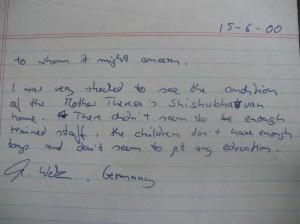 15-6-00
to whom it might concern.
I was very shocked to see the condition
of the Mother Theresa's Shishubhavan
home. There didn't seem to be enough
trained staff, the children don't have enough
toys and don't seem to get any education.
Germany